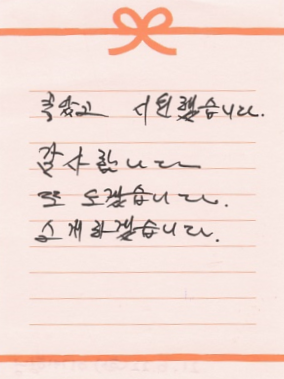 좋았고 시원했습니다.
감사합니다
또 오겠습니다.
소개하겠습니다.